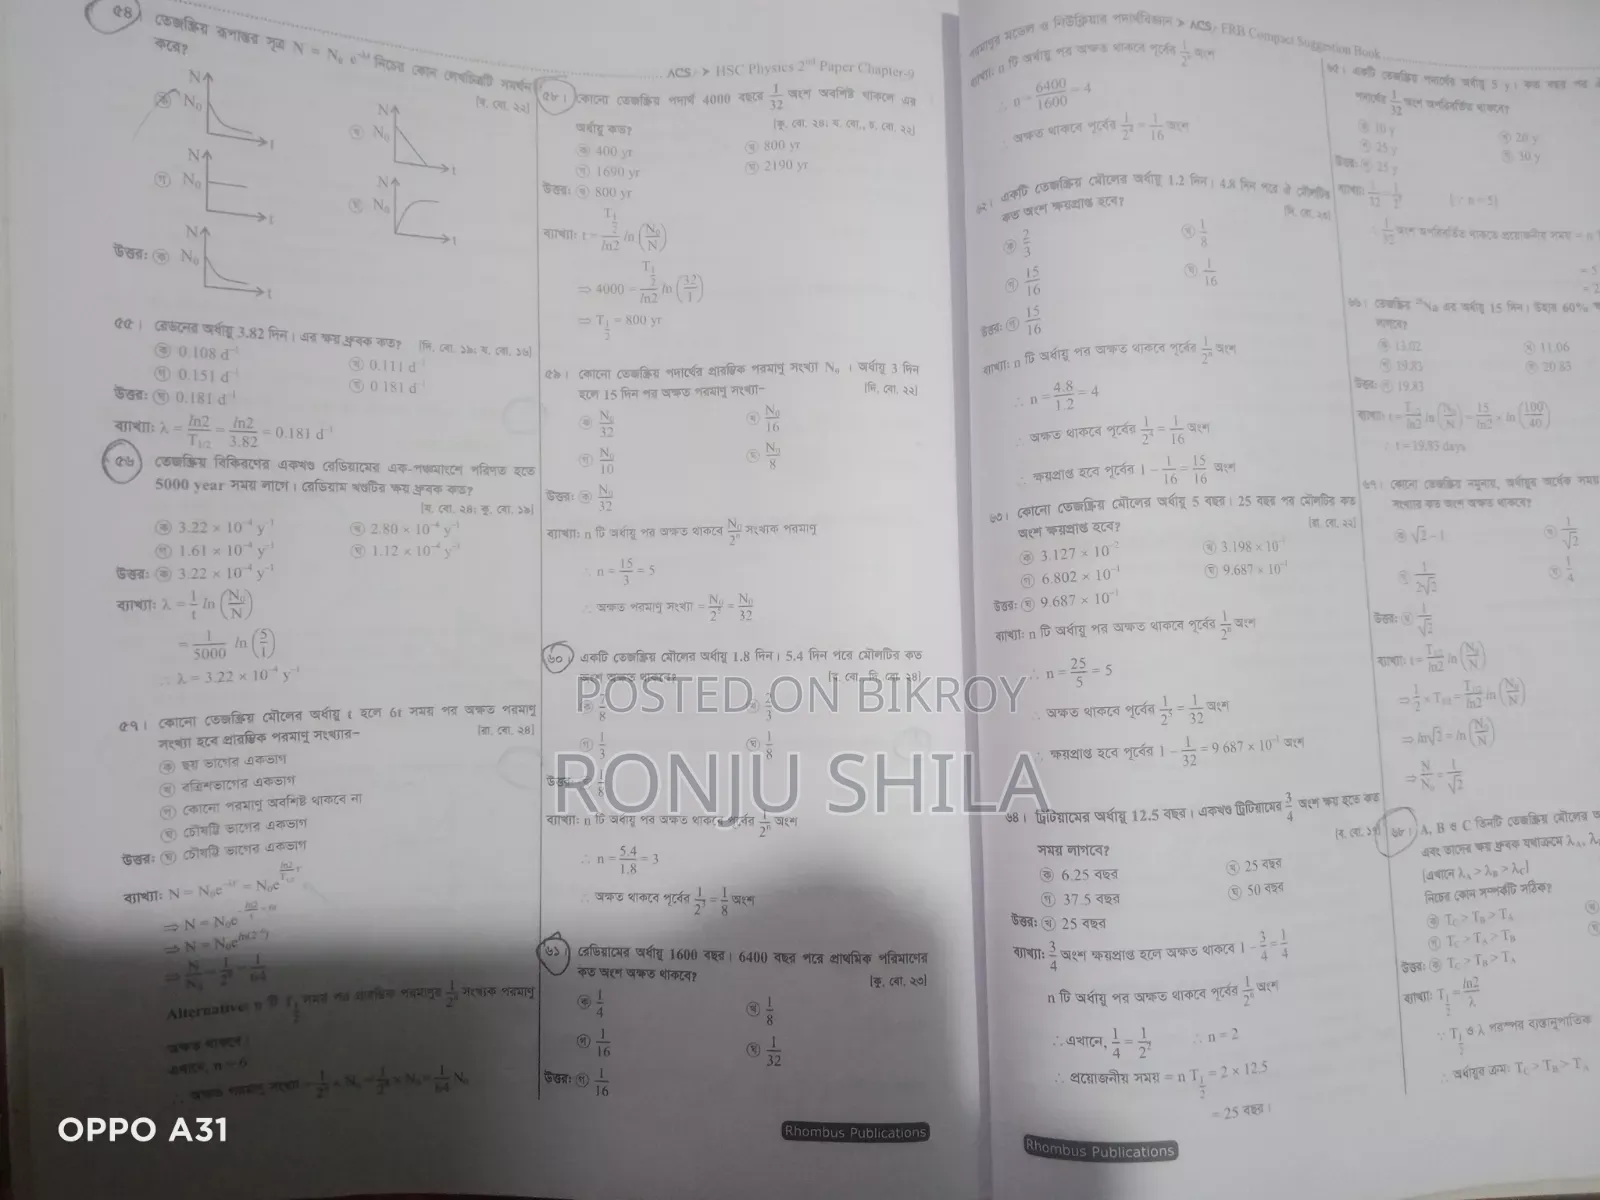 ACS > HSC Physics 2nd Paper Chapter-9
৫৪। তেজস্ক্রিয় রূপান্তর সূত্র N = N₀ e^-λt নিচের কোন লেখচিত্রটি সমর্থন
করে?
[ব. বো. ২২]
ক N₀ N t
খ N₀ N t
গ N₀ N t
ঘ N₀ N t
উত্তর: ক N₀ N t
৫৫। রেডনের অর্ধায়ু 3.82 দিন। এর ক্ষয় ধ্রুবক কত?
ক 0.108 d⁻¹ খ 0.111 d⁻¹
গ 0.151 d⁻¹ ঘ 0.181 d⁻¹
উত্তর: ঘ 0.181 d⁻¹
ব্যাখ্যা: λ = ln2/T1/2 = ln2/3.82 = 0.181 d⁻¹
৫৬। তেজস্ক্রিয় বিকিরণের একখণ্ড রেডিয়ামের এক-পঞ্চমাংশে পরিণত হতে
5000 year সময় লাগে। রেডিয়াম খণ্ডটির ক্ষয় ধ্রুবক কত?
[য. বো. ২৪; কু. বো. ১৯]
ক 3.22 × 10⁻⁴ y⁻¹ খ 2.80 × 10⁻⁴ y⁻¹
গ 1.61 × 10⁻⁴ y⁻¹ ঘ 1.12 × 10⁻⁴ y⁻¹
উত্তর: ক 3.22 × 10⁻⁴ y⁻¹
ব্যাখ্যা: λ = 1/t ln (N₀/N)
= 1/5000 ln (5/1)
∴ λ = 3.22 × 10⁻⁴ y⁻¹
৫৭। কোনো তেজস্ক্রিয় মৌলের অর্ধায়ু t হলে 6t সময় পর অক্ষত পরমাণু
সংখ্যা হবে প্রারম্ভিক পরমাণু সংখ্যার– [রা. বো. ২৪]
ক ছয় ভাগের একভাগ
খ বত্রিশভাগের একভাগ
গ কোনো পরমাণু অবশিষ্ট থাকবে না
ঘ চৌষট্টি ভাগের একভাগ
উত্তর: ঘ চৌষট্টি ভাগের একভাগ
ব্যাখ্যা: N = N₀e^-λt = N₀e
⇒ N = N₀e
⇒ N = N₀e
⇒ N/N₀ = 1/2⁶ = 1/64
Alternative: n টি T1/2 সময় পর প্রারম্ভিক পরমাণুর 1/2ⁿ সংখ্যক পরমাণু
অক্ষত থাকবে।
এখানে, n = 6
∴ অক্ষত পরমাণু সংখ্যা = 1/2ⁿ × N₀ = 1/2⁶ × N₀ = 1/64 N₀
৫৮। কোনো তেজস্ক্রিয় পদার্থ 4000 বছরে 1/32 অংশ অবশিষ্ট থাকলে এর
অর্ধায়ু কত? [কু. বো. ২৪; য. বো., চ. বো. ২২]
ক 400 yr খ 800 yr
গ 1690 yr ঘ 2190 yr
উত্তর: খ 800 yr
ব্যাখ্যা: t = T1/2/ln2 ln (N₀/N)
⇒ 4000 = T1/2/ln2 ln (32/1)
⇒ T1/2 = 800 yr
৫৯। কোনো তেজস্ক্রিয় পদার্থের প্রারম্ভিক পরমাণু সংখ্যা N₀ । অর্ধায়ু 3 দিন
হলে 15 দিন পর অক্ষত পরমাণু সংখ্যা– [দি. বো. ২২]
ক N₀/32 খ N₀/16
গ N₀/10 ঘ N₀/8
উত্তর: ক N₀/32
ব্যাখ্যা: n টি অর্ধায়ু পর অক্ষত থাকবে N₀/2ⁿ সংখ্যক পরমাণু
∴ n = 15/3 = 5
∴ অক্ষত পরমাণু সংখ্যা = N₀/2⁵ = N₀/32
৬০। একটি তেজস্ক্রিয় মৌলের অর্ধায়ু 1.8 দিন। 5.4 দিন পরে মৌলটির কত
অংশ অক্ষত থাকবে?
ক 7/8 খ 2/3
গ 1/3 ঘ 1/8
উত্তর: ঘ 1/8
ব্যাখ্যা: n টি অর্ধায়ু পর অক্ষত থাকবে পূর্বের 1/2ⁿ অংশ
∴ n = 5.4/1.8 = 3
∴ অক্ষত থাকবে পূর্বের 1/2³ = 1/8 অংশ
৬১। রেডিয়ামের অর্ধায়ু 1600 বছর। 6400 বছর পরে প্রাথমিক পরিমাণের
কত অংশ অক্ষত থাকবে? [কু. বো. ২৩]
ক 1/4 খ 1/8
গ 1/16 ঘ 1/32
উত্তর: গ 1/16
Rhombus Publications
পরমাণুর মডেল ও নিউক্লিয়ার পদার্থবিজ্ঞান > ACS > FRB Compact Suggestion Book
ব্যাখ্যা: n টি অর্ধায়ু পর অক্ষত থাকবে পূর্বের 1/2ⁿ অংশ
∴ n = 6400/1600 = 4
∴ অক্ষত থাকবে পূর্বের 1/2⁴ = 1/16 অংশ
৬২। একটি তেজস্ক্রিয় মৌলের অর্ধায়ু 1.2 দিন। 4.8 দিন পরে ঐ মৌলটির
কত অংশ ক্ষয়প্রাপ্ত হবে?
ক 2/3 খ 1/8
গ 15/16 ঘ 1/16
উত্তর: গ 15/16
ব্যাখ্যা: n টি অর্ধায়ু পর অক্ষত থাকবে পূর্বের 1/2ⁿ অংশ
∴ n = 4.8/1.2 = 4
∴ অক্ষত থাকবে পূর্বের 1/2⁴ = 1/16 অংশ
∴ ক্ষয়প্রাপ্ত হবে পূর্বের 1 – 1/16 = 15/16 অংশ
৬৩। কোনো তেজস্ক্রিয় মৌলের অর্ধায়ু 5 বছর। 25 বছর পর মৌলটির কত
অংশ ক্ষয়প্রাপ্ত হবে? [রা. বো. ২২]
ক 3.127 × 10⁻² খ 3.198 × 10⁻¹
গ 6.802 × 10⁻¹ ঘ 9.687 × 10⁻¹
উত্তর: ঘ 9.687 × 10⁻¹
ব্যাখ্যা: n টি অর্ধায়ু পর অক্ষত থাকবে পূর্বের 1/2ⁿ অংশ
∴ n = 25/5 = 5
∴ অক্ষত থাকবে পূর্বের 1/2⁵ = 1/32 অংশ
∴ ক্ষয়প্রাপ্ত হবে পূর্বের 1 – 1/32 = 9.687 × 10⁻¹ অংশ
৬৪। ট্রিটিয়ামের অর্ধায়ু 12.5 বছর। একখণ্ড ট্রিটিয়ামের 3/4 অংশ ক্ষয় হতে কত
সময় লাগবে?
ক 6.25 বছর খ 25 বছর
গ 37.5 বছর ঘ 50 বছর
উত্তর: খ 25 বছর
ব্যাখ্যা: 3/4 অংশ ক্ষয়প্রাপ্ত হলে অক্ষত থাকবে 1 – 3/4 = 1/4
n টি অর্ধায়ু পর অক্ষত থাকবে পূর্বের 1/2ⁿ অংশ
∴ এখানে, 1/4 = 1/2² ∴ n = 2
∴ প্রয়োজনীয় সময় = n T1/2 = 2 × 12.5
= 25 বছর।
Rhombus Publications
৬৫। একটি তেজস্ক্রিয় পদার্থের অর্ধায়ু 5 y। কত বছর পর
পদার্থের 1/32 অংশ অপরিবর্তিত থাকবে?
ক 10 y খ 20 y
গ 25 y ঘ 30 y
উত্তর: গ 25 y
ব্যাখ্যা: 1/32 = 1/2⁵ [∴ n = 5]
∴ 1/32 অংশ অপরিবর্তিত থাকবে প্রয়োজনীয় সময় = n
= 5
= 2
৬৬। তেজস্ক্রিয় Na এর অর্ধায়ু 15 দিন। উহার 60%
লাগবে?
ক 13.02 খ 11.06
গ 19.83 ঘ 20.83
উত্তর: গ 19.83
ব্যাখ্যা: t = T1/2/ln2 ln (N₀/N) = 15/ln2 × ln (100/40)
∴ t = 19.83 days
৬৭। কোনো তেজস্ক্রিয় নমুনার, অর্ধায়ুর অর্ধেক সময়
সংখ্যার কত অংশ অক্ষত থাকবে?
ক √2 – 1 খ 1/√2
গ 1/2√2 ঘ 1/4
উত্তর: খ 1/√2
ব্যাখ্যা: t = T1/2/ln2 ln (N₀/N)
⇒ 1/2 × T1/2 = T1/2/ln2 ln (N₀/N)
⇒ ln√2 = ln (N₀/N)
⇒ N/N₀ = 1/√2
৬৮। A, B ও C তিনটি তেজস্ক্রিয় মৌলের
এবং তাদের ক্ষয় ধ্রুবক যথাক্রমে λA, λ
[এখানে λA > λB > λC]
নিচের কোন সম্পর্কটি সঠিক?
ক TC > TB > TA
গ TC > TA > TB
উত্তর: ক TC > TB > TA
ব্যাখ্যা: T1/2 = ln2/λ
∵ T1/2 ও λ পরস্পর ব্যস্তানুপাতিক
∴ অর্ধায়ুর ক্রম: TC > TB > TA
POSTED ON BIKROY
RONJU SHILA
OPPO A31